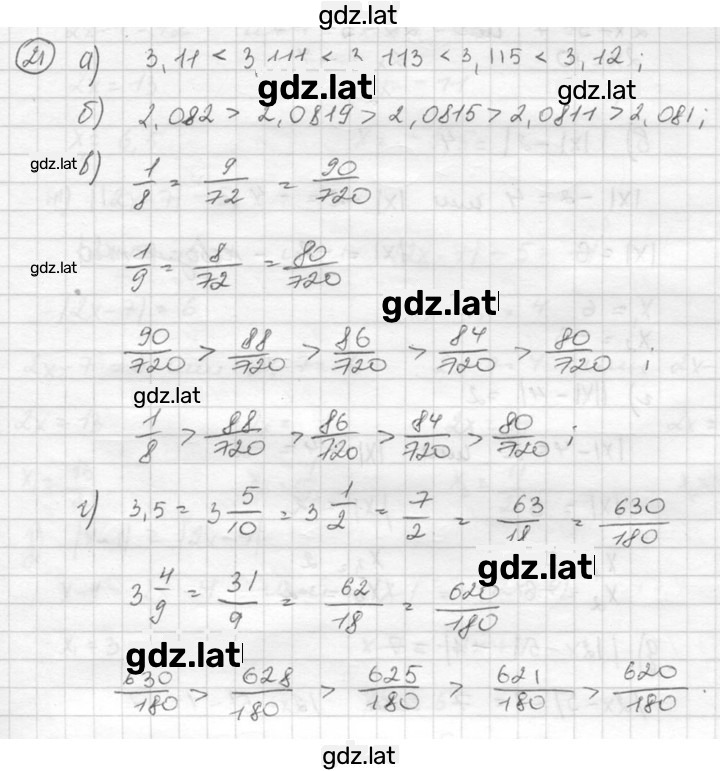 gdz.lat
21 а) 3,11 < 3,111 < 3,113 < 3,115 < 3,12;
gdz.lat gdz.lat
б) 2,082 > 2,0819 > 2,0815 > 2,0811 > 2,081;
gdz.lat в) 1/8 = 9/72 = 90/720
gdz.lat 1/9 = 8/72 = 80/720
gdz.lat
90/720 > 88/720 > 86/720 > 84/720 > 80/720;
gdz.lat
1/8 > 88/720 > 86/720 > 84/720 > 80/720;
г) 3,5 = 3 5/10 = 3 1/2 = 7/2 = 63/18 = 630/180
gdz.lat
3 4/9 = 31/9 = 62/18 = 620/180
gdz.lat
630/180 > 628/180 > 625/180 > 621/180 > 620/180.
gdz.lat